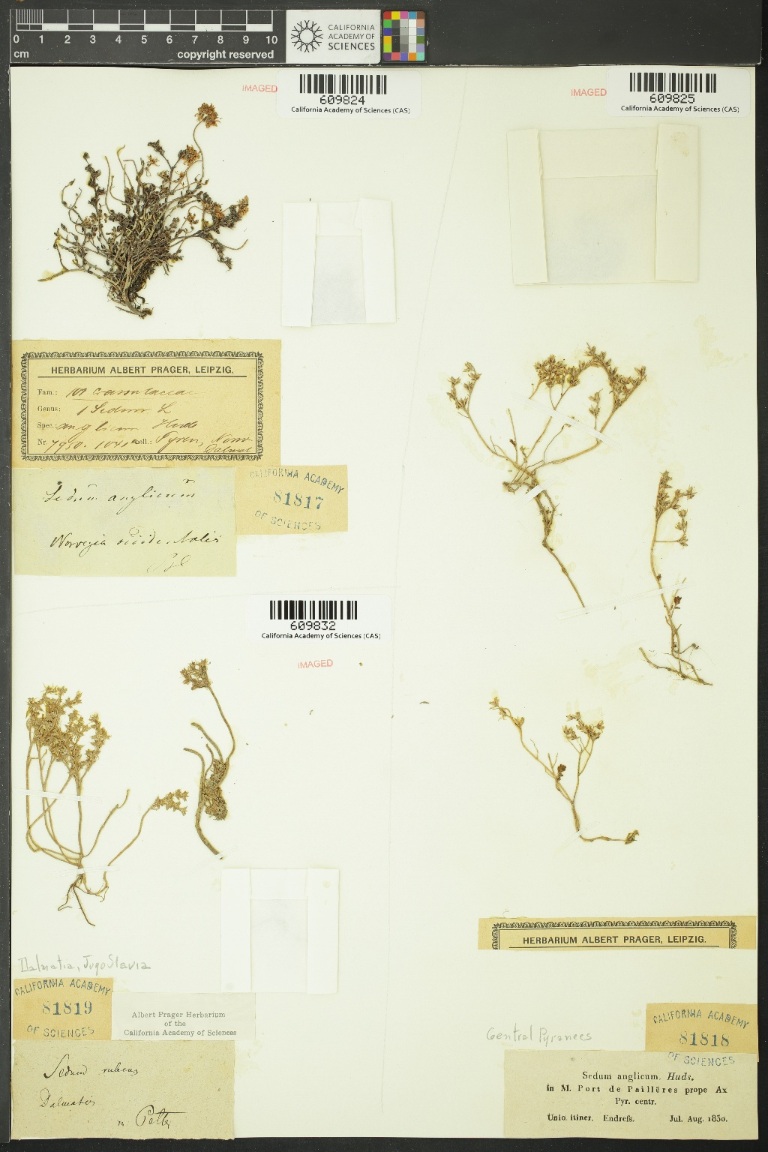 0 1 2 3 4 5 6 7 8 9 10
cm
copyright reserved
CALIFORNIA
ACADEMY OF
SCIENCES
IMAGED
609824
California Academy of Sciences (CAS)
IMAGED
609825
California Academy of Sciences (CAS)
HERBARIUM ALBERT PRAGER, LEIPZIG.
Fam:
Genus: Sedum L
Spec. anglicum Huds
Nr.
CALIFORNIA ACADEMY
81817
OF SCIENCES
Sedum anglicum
Norvegia
609832
California Academy of Sciences (CAS)
IMAGED
Dalmatia, JugoSlavia
CALIFORNIA ACADEMY
81819
OF SCIENCES
Albert Prager Herbarium
of the
California Academy of Sciences
Sedum rubens
Petter
HERBARIUM ALBERT PRAGER, LEIPZIG.
CALIFORNIA ACADEMY
81818
OF SCIENCES
Central Pyranees
Sedum anglicum. Huds.
in M. Port de Paillères prope Ax
Pyr. centr.
Unio itiner. Endreſs. Jul. Aug. 1830.